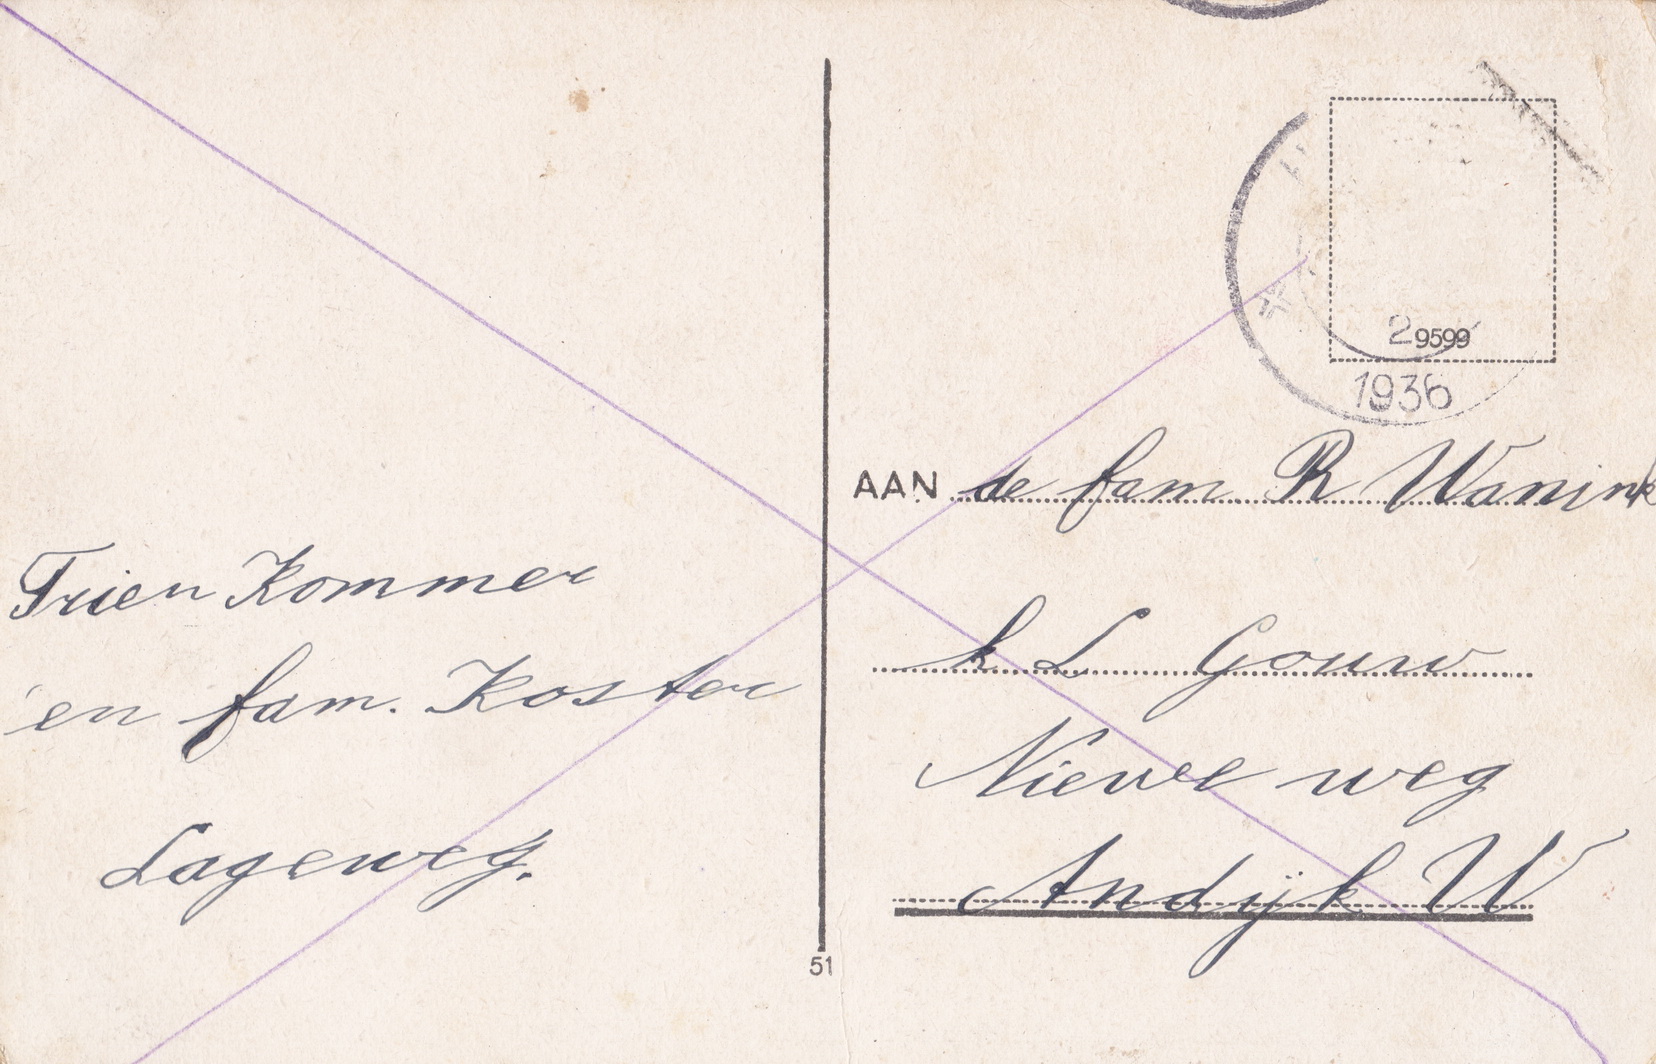 Trien Kommer
en fam. Koster
Lageweg.
51
29599
1936
AAN de fam. R Wanink
k L Gouw
Nieuwe weg
Andijk W